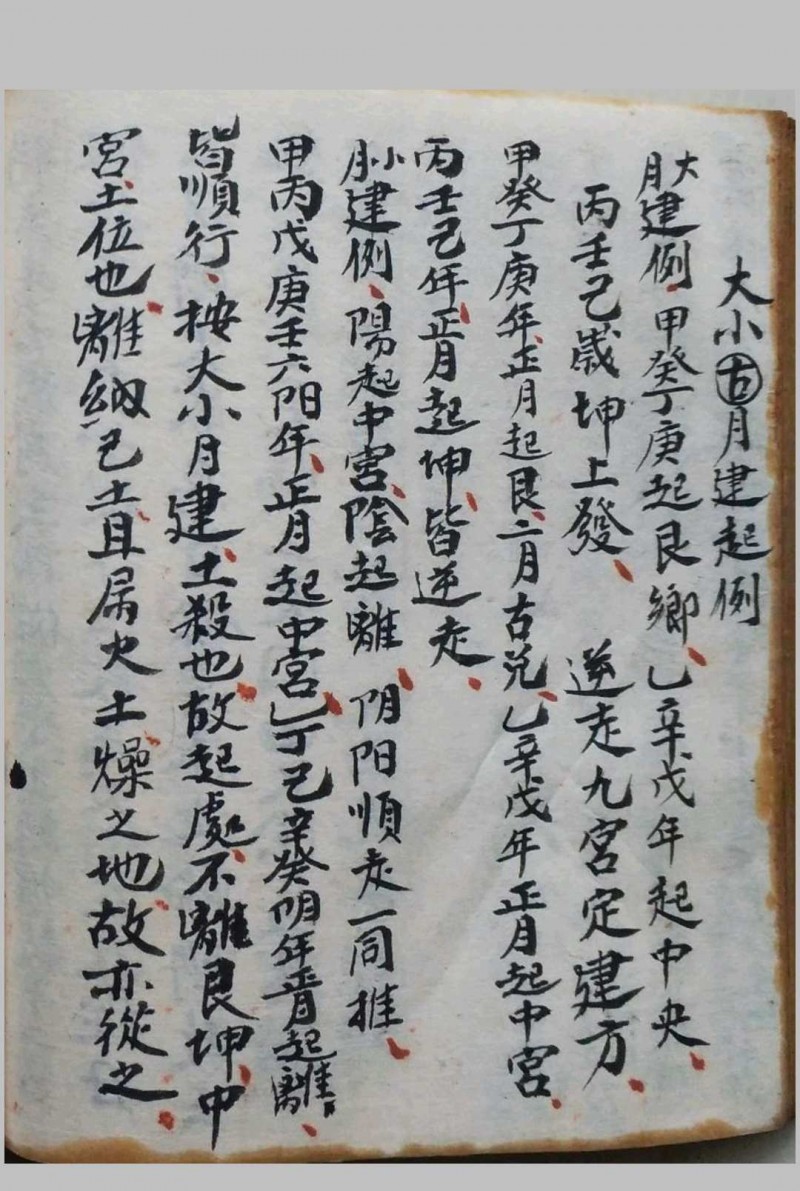 大小古月建起例
大月建例甲癸丁庚起艮鄉乙辛戊年起中央
丙壬己歲坤上發 逆走九宮定建方
甲癸丁庚年正月起艮二月古兑乙辛戊年正月起中宮
丙壬己年正月起坤皆逆走
小月建例陽起中宮陰起離 阴阳順走一同推
甲丙戊庚壬六阳年正月起中宮乙丁己辛癸阴年正月起離
皆順行按大小月建土殺也故起處不離艮坤中
宮土位也離納己土且属火土燥之地故亦從之